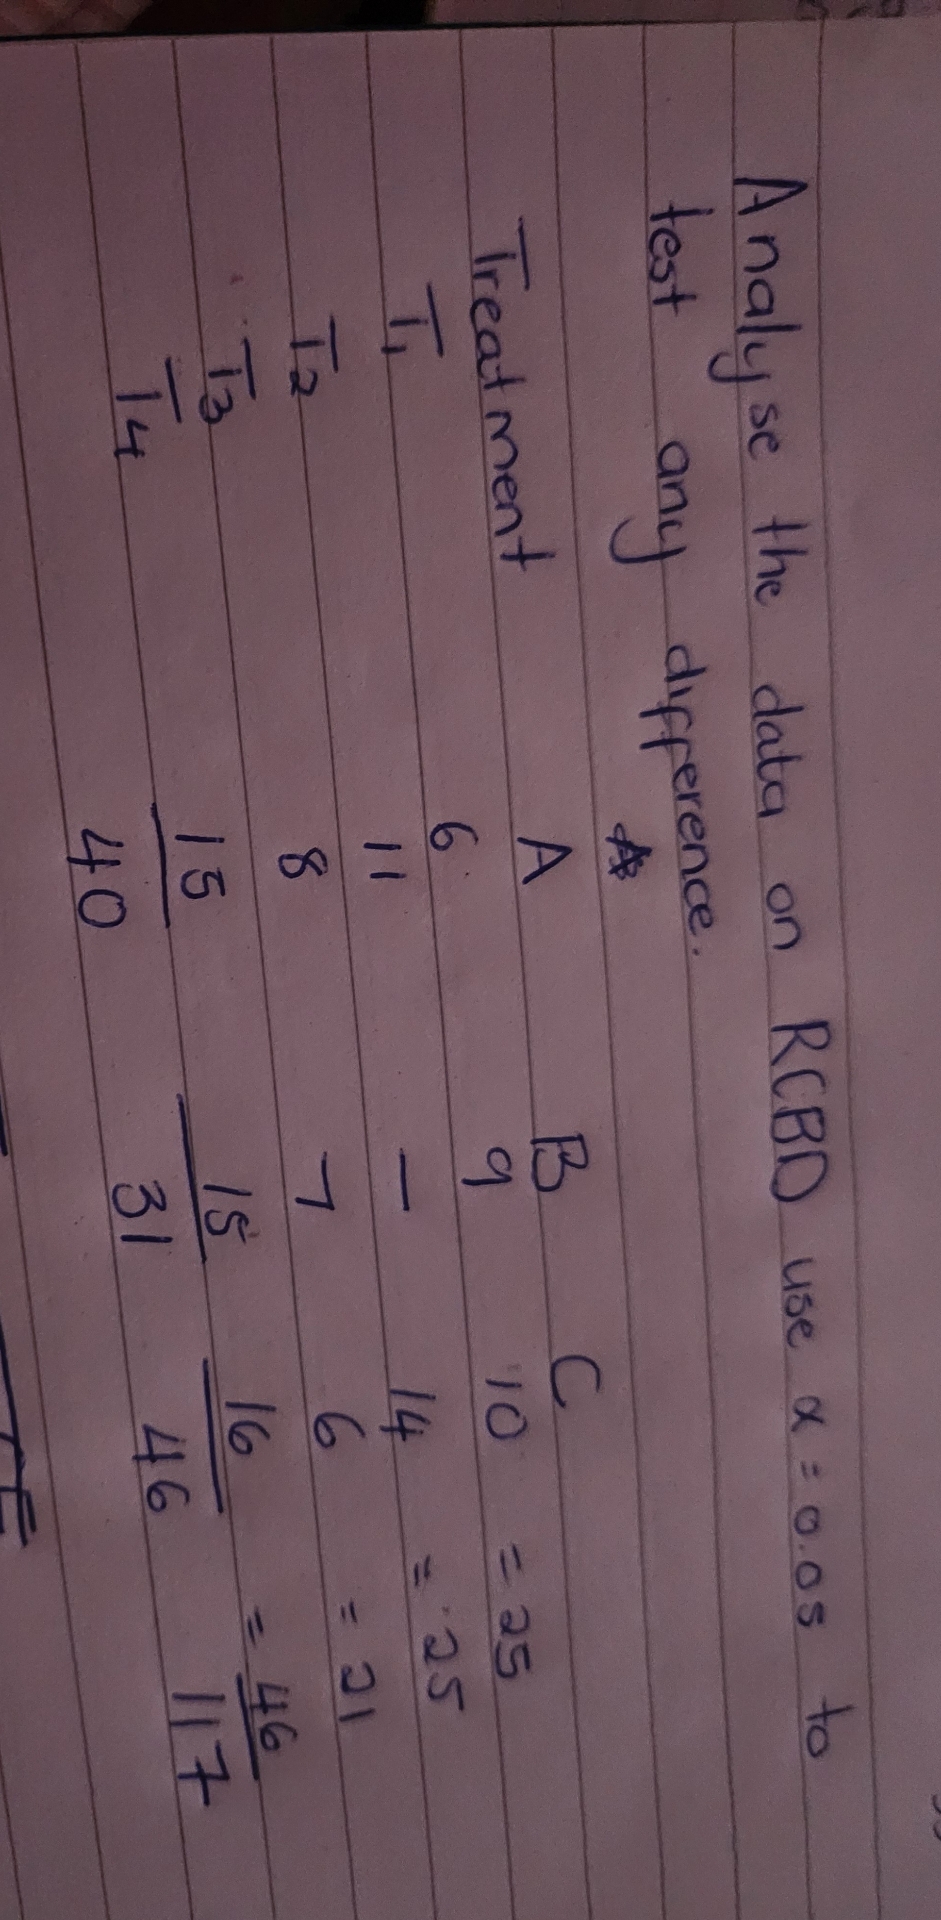 Analyse the data on RCBD use α = 0.05 to
test any difference.
Treatment A B C
T1 6 9 10 = 25
T2 11 – 14 = 25
T3 8 7 6 = 21
T4 15 15 16 = 46
40 31 46 117